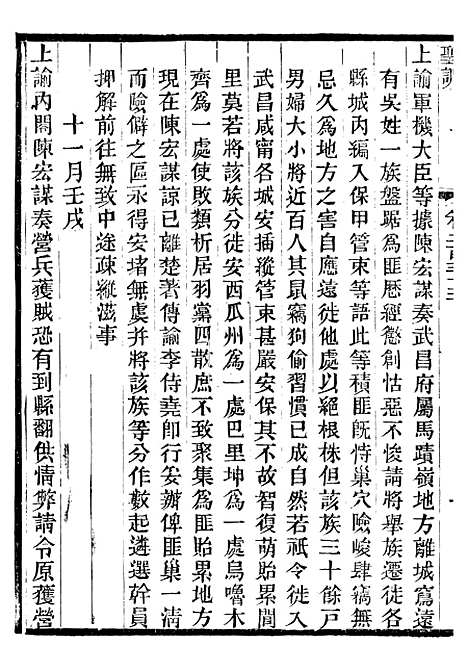 聖訓
上諭軍機大臣等據陳宏謀奏武昌府屬馬蹟嶺地方離城寫遠
有吳姓一族盤踞為匪歷經懲創怙惡不悛請將舉族遷徙各
縣城內編入保甲管束等語此等積匪既恃巢穴險峻肆竊無
忌久為地方之害自應遠徙他處以絕根株但該族三十餘戸
男婦大小將及二百人鼠竊狗偷習慣已成自然若祇令徙入
武昌咸甯各城安插縱管束甚嚴安保其不故智復萌貽累鄰
里莫若將該族分徙安西瓜州為一處巴里坤為一處烏嚕木
齊為一處使敗類析居羽黨四散庶不致聚集為匪貽累地方
現在陳宏謀諒已離楚著傳諭李侍堯即行妥辦俾匪巢一清
而險僻之區永得安堵無虞并將該族等分作數起遴選幹員
押解前往無致中途疎縱滋事
十一月壬戌
上諭內閣陳宏謀奏營兵獲賊恐有到縣翻供情弊請令原獲營